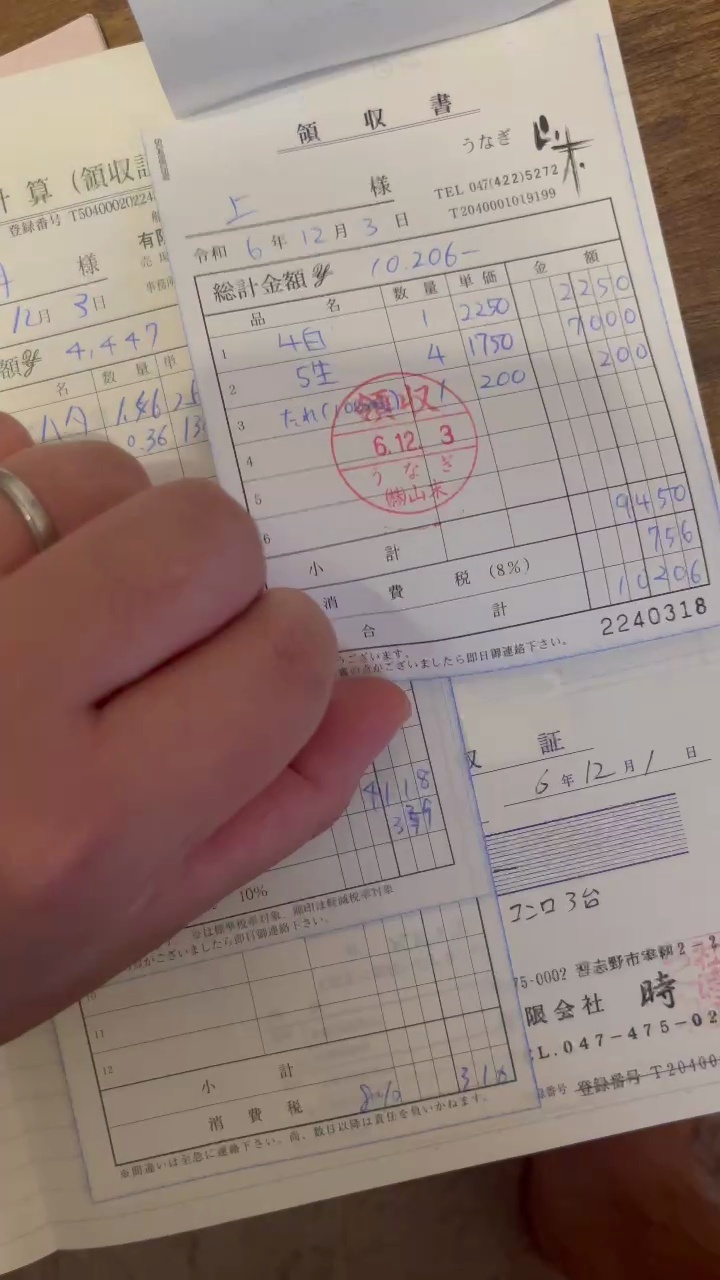 領収書
うなぎ 山味
上 様
TEL 047(422)5272
T2040001019199
令和 6 年 12 月 3 日
総計金額 ¥ 10.206-
品 名 数 量 単 価 金 額
1 4白 1 2250 2250
2 5生 4 1750 7000
3 たれ( 1 200 200
4
5
6
領収
6.12. 3
うなぎ
小 計 9450
消 費 税 (8%) 756
合 計 10206
2240318
ございます。
ございましたら即日御連絡下さい。
計算(領収証
登録番号 T50400020224
様
12月 3日
額¥ 4,447
名 数 量 単
ハタ 1.46
0.36
4118
10%
※は標準税率対象、無印は軽減税率対象
がございましたら即日御連絡下さい。
10
11
12
小 計
消 費 税 8%
※間違いは至急に連絡下さい。尚、数日以降は責任を負いかねます。
証
6 年 12 月 1 日
コンロ 3台
75-0002 習志野市
限会社 時
L.047-475-02
登録番号 T20400